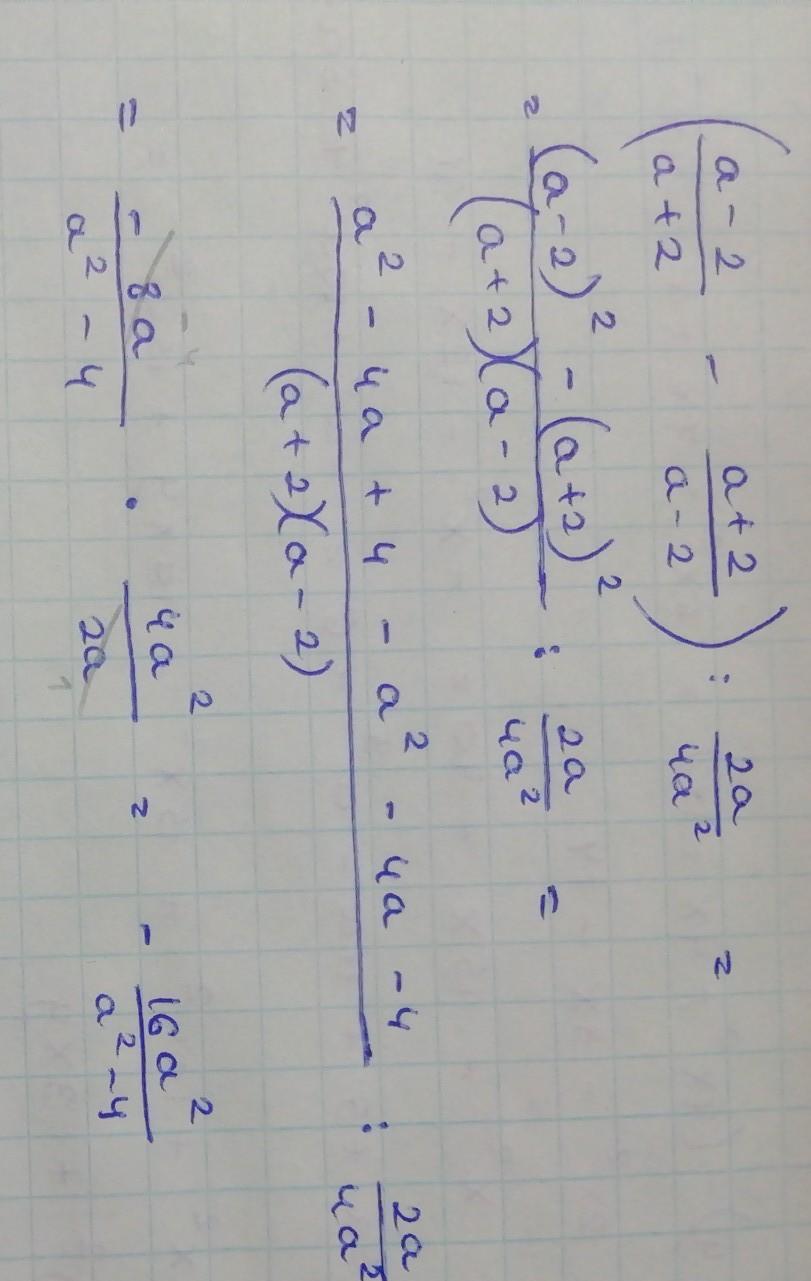 ( (a - 2)/(a + 2) - (a + 2)/(a - 2) ) : 2a/4a² =
= ((a - 2)² - (a + 2)²)/((a + 2)(a - 2)) : 2a/4a² =
= (a² - 4a + 4 - a² - 4a - 4)/((a + 2)(a - 2)) : 2a/4a²
= (- 8a)/(a² - 4) · 4a²/2a = - 16a²/(a² - 4)